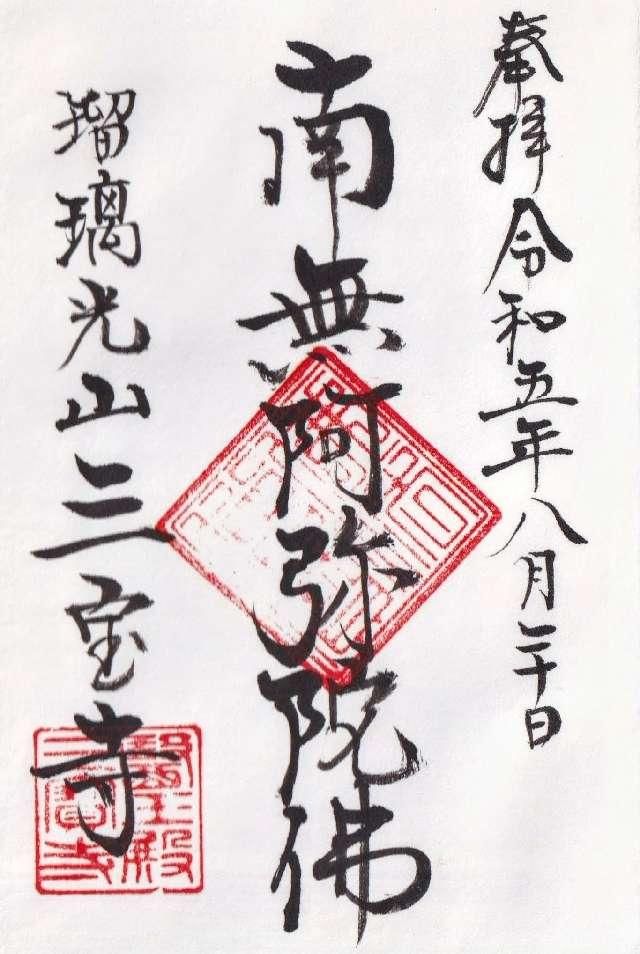 奉拝 令和五年八月二十日
南無阿弥陀佛
瑠璃光山三宝寺
醫王殿
三宝寺